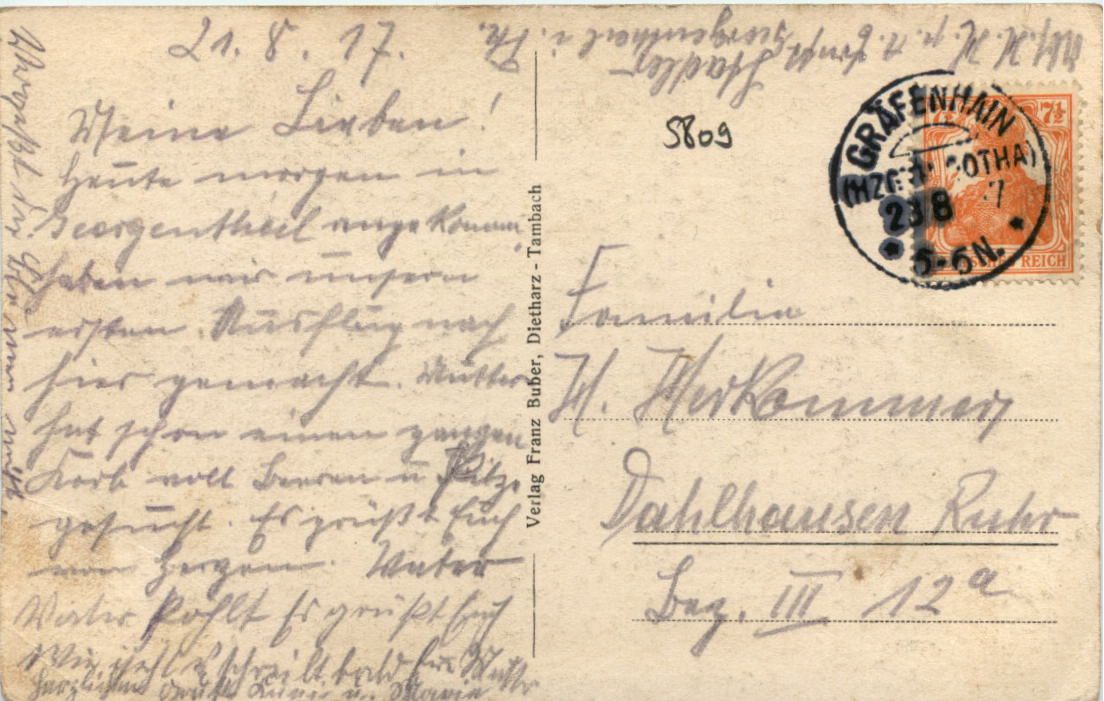 21. 8. 17.
Meine Lieben!
Heute morgen in
Georgenthal angekomm.
haben wir unsern
ersten Ausflug nach
hier gemacht. Mutter
hat schon einen ganzen
Korb voll Beeren u Pilze
gesucht. Es grüßt Euch
von Herzen. Vater
Vater Pohlt Es grüßt Euch
schreibt bald Eure Mutter
herzlichen Gruß u. Marie
Vergeßt die Blumen nicht
Verlag Franz Buber, Dietharz - Tambach
Georgenthal i. Th.
5809
GRÄFENHAIN
(HZGT. GOTHA)
23 8 17
5-6N.
7½
REICH
Familie
H. Herkommer
Dahlhausen Ruhr
Bez. III 12a